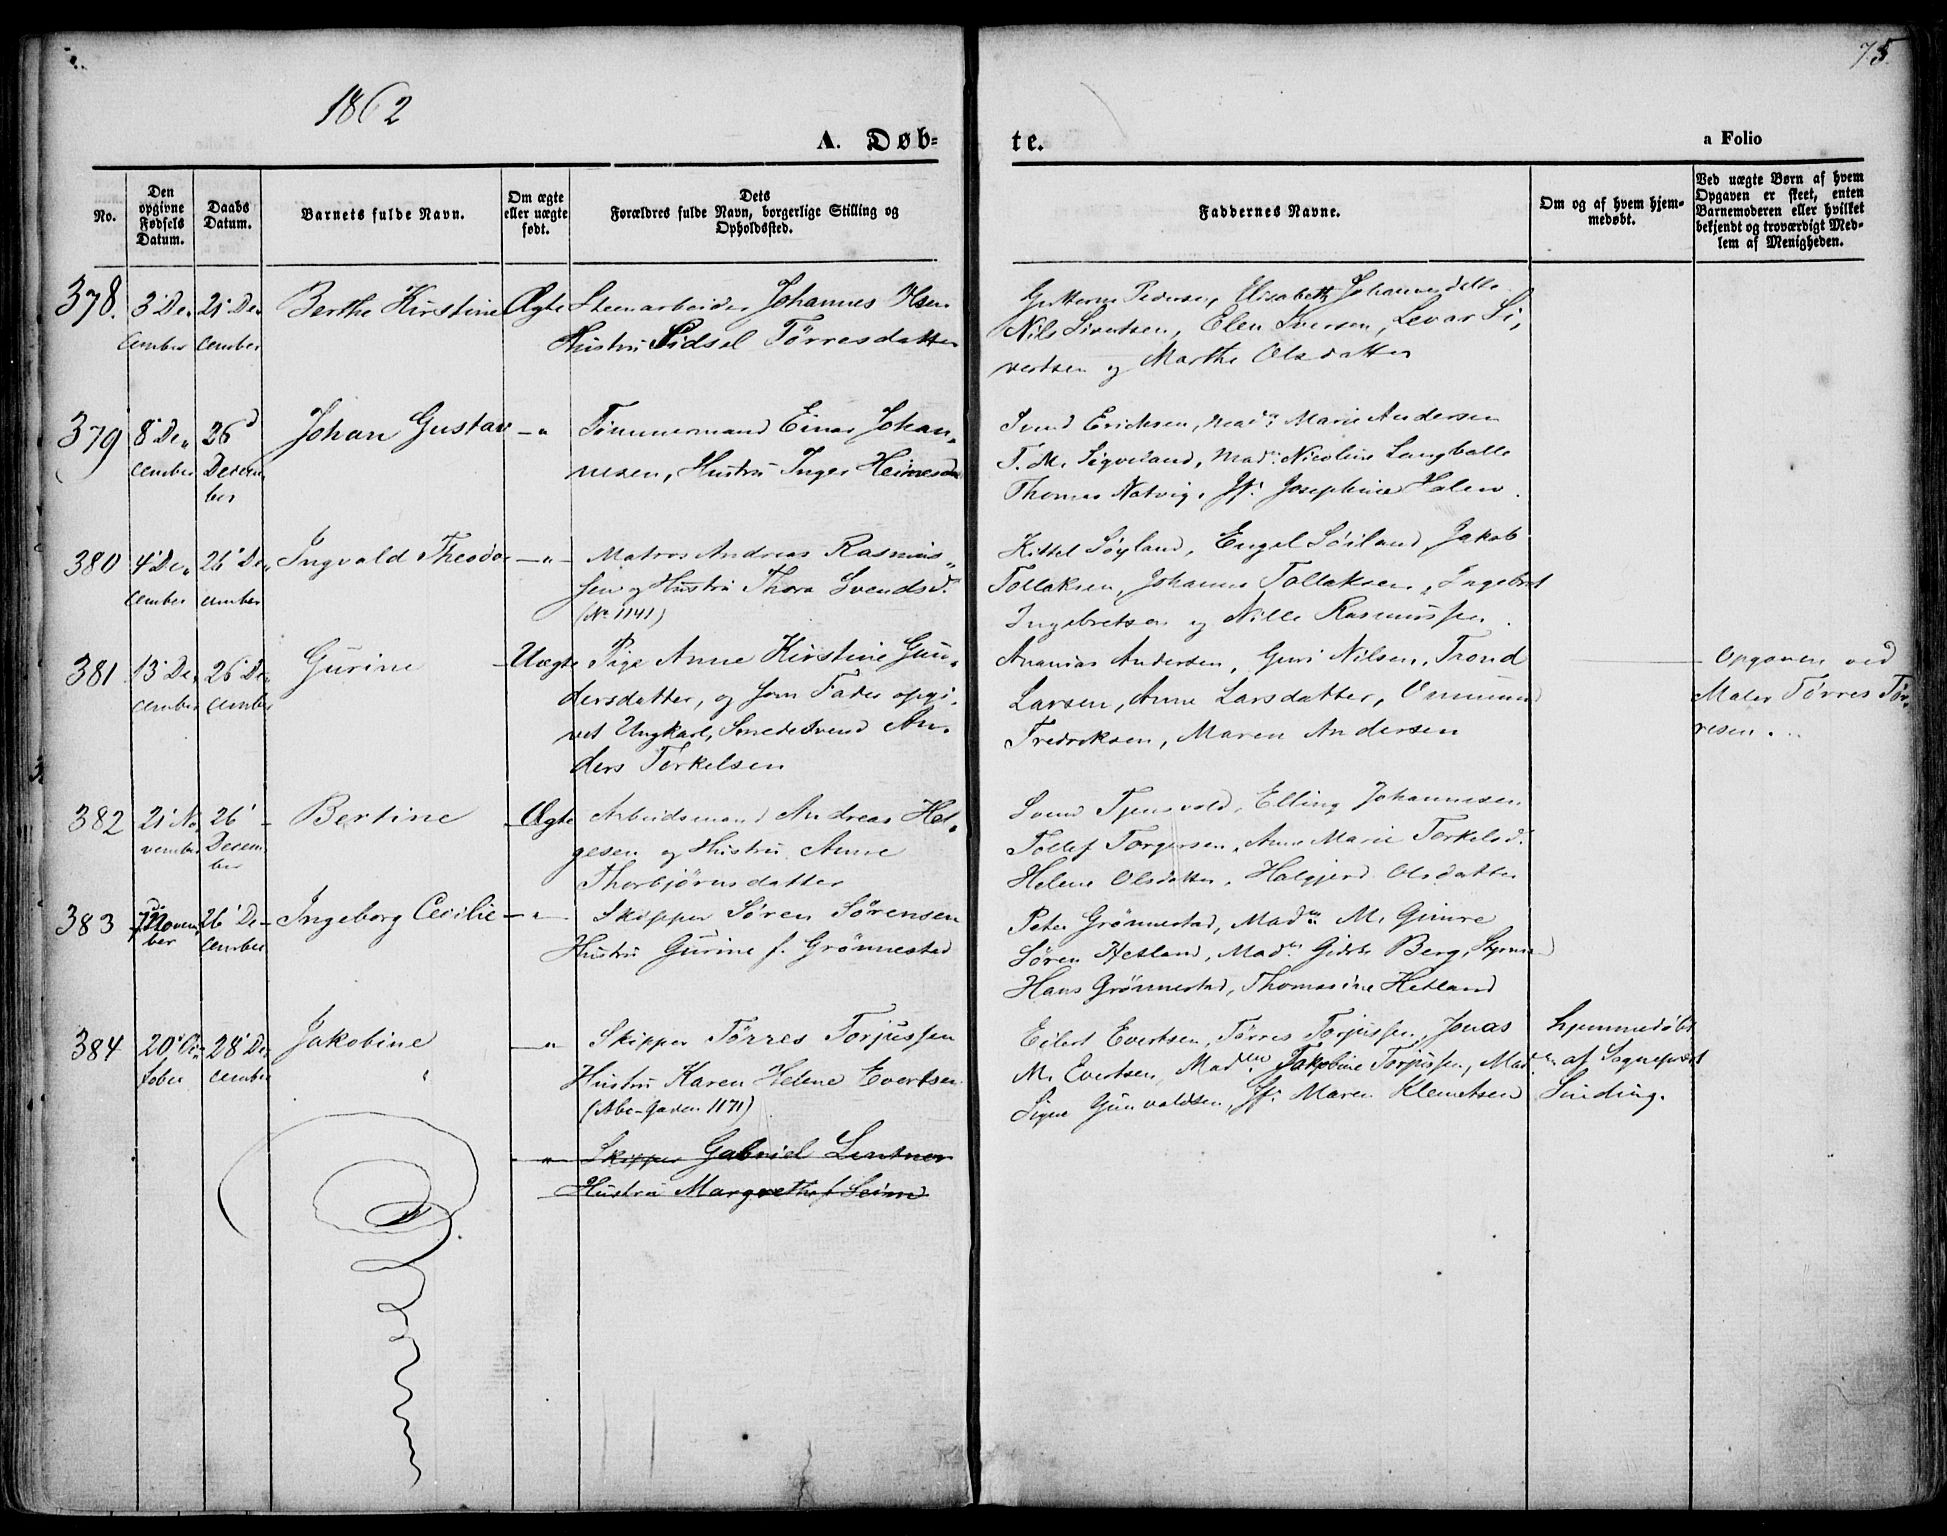 75.
1862
A. Døb-
te.
a Folio
No.
Den opgivne Fødsels Datum.
Daabs Datum.
Barnets fulde Navn.
Om ægte eller uægte født.
Dets Forældres fulde Navn, borgerlige Stilling og Opholdssted.
Faddernes Navne.
Om og af hvem hjemmedøbt.
Ved uægte Børn af hvem Opgaven er skeet, enten Barnemoderen eller hvilket bekjendt og troværdigt Medlem af Menigheden.
378. 3' De, 21' De, Berthe Kirstine Ægte Steenarbeider Johannes
cember cember Hustru Sidsel Tørresdatter
Pedersen, Elisabeth
Nils Sivertsen, Elen Iversen, Levar Si,
vertsen og Marthe Olsdatter
379 8' De, 26' Johan Gustav — " Tømmermand Einar Johan,
cember Decem nesen, Hustru Inger
ber
Svend Ericksen, Mad: Marie Andersen
T. M. Sigveland, Mad: Nicoline Langballe
Thomas Natvig, Jf. Josephine Halen.
380 4' De, 26' De, Ingvald Theodor — " — Matros Andreas Rasmus,
cember cember sen og Hustru Thora Svendsd.
(No 1141)
Kittel Søyland, Engel Søiland, Jakob
Tollaksen, Johannes Tollaksen, Ingebret
Ingebretsen og Nille Rasmussen.
381 13' De, 26' De, Gurine Uægte Pige Anne Kirstine Gun,
cember cember dersdatter, og som Fader opgi,
vet Ungkarl, Smedesvend An,
ders Torkelsen
Ananias Andersen, Guri Nilsen, Trond
Larsen, Anne Larsdatter, Ommund
Fredriksen, Maren Andersen
Opgaven ved
Maler Tørres Tør,
resen.
382 21' No, 26' Bertine Ægte Arbeidsmand Andreas Hel,
vember Decem gesen og Hustru Anne
ber Thorbjørnsdatter
Svend Tjensvold, Elling Johannesen
Tollef Torgersen, Anne Marie Torkelsd.
Helene Olsdatter, Olsdatter
383 7 Novem 26' De- Ingeborg Cecilie — " — Skipper Sören Sörensen
ber cember Hustru Gurine f. Grönnestad
Peter Grönnestad, Mad: M. Gimre
Sören Hetland, Mad: Berg, Styrmd
Hans Grönnestad, Thomasine Hetland
384 20' Oc- 28' De, Jakobine — " Skipper Tørres Torjussen
tober cember Hustru Karen Helene Evertsen
(1171)
Eilert Evertsen, Tørres Torjussen, Jonas
M. Evertsen, Mad: Jakobine Torjussen, Mad:
Signe Gunvaldsen, Jf. Maren Klemetsen
hjemmedøbt
af Sognepræst
Sinding.
— " — Skipper Gabriel Lintner
Hustru Margrethe f.